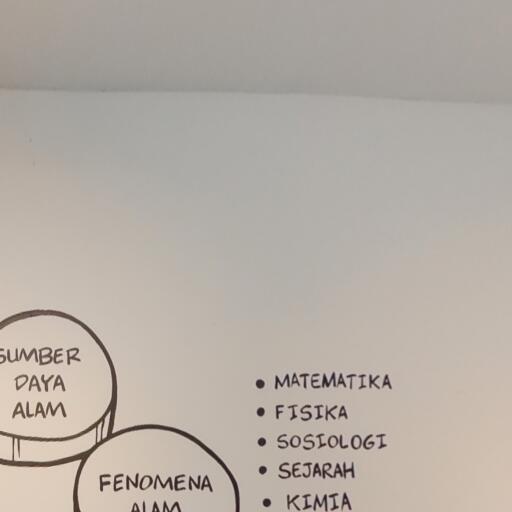 SUMBER
DAYA
ALAM
FENOMENA
ALAM
• MATEMATIKA
• FISIKA
• SOSIOLOGI
• SEJARAH
• KIMIA